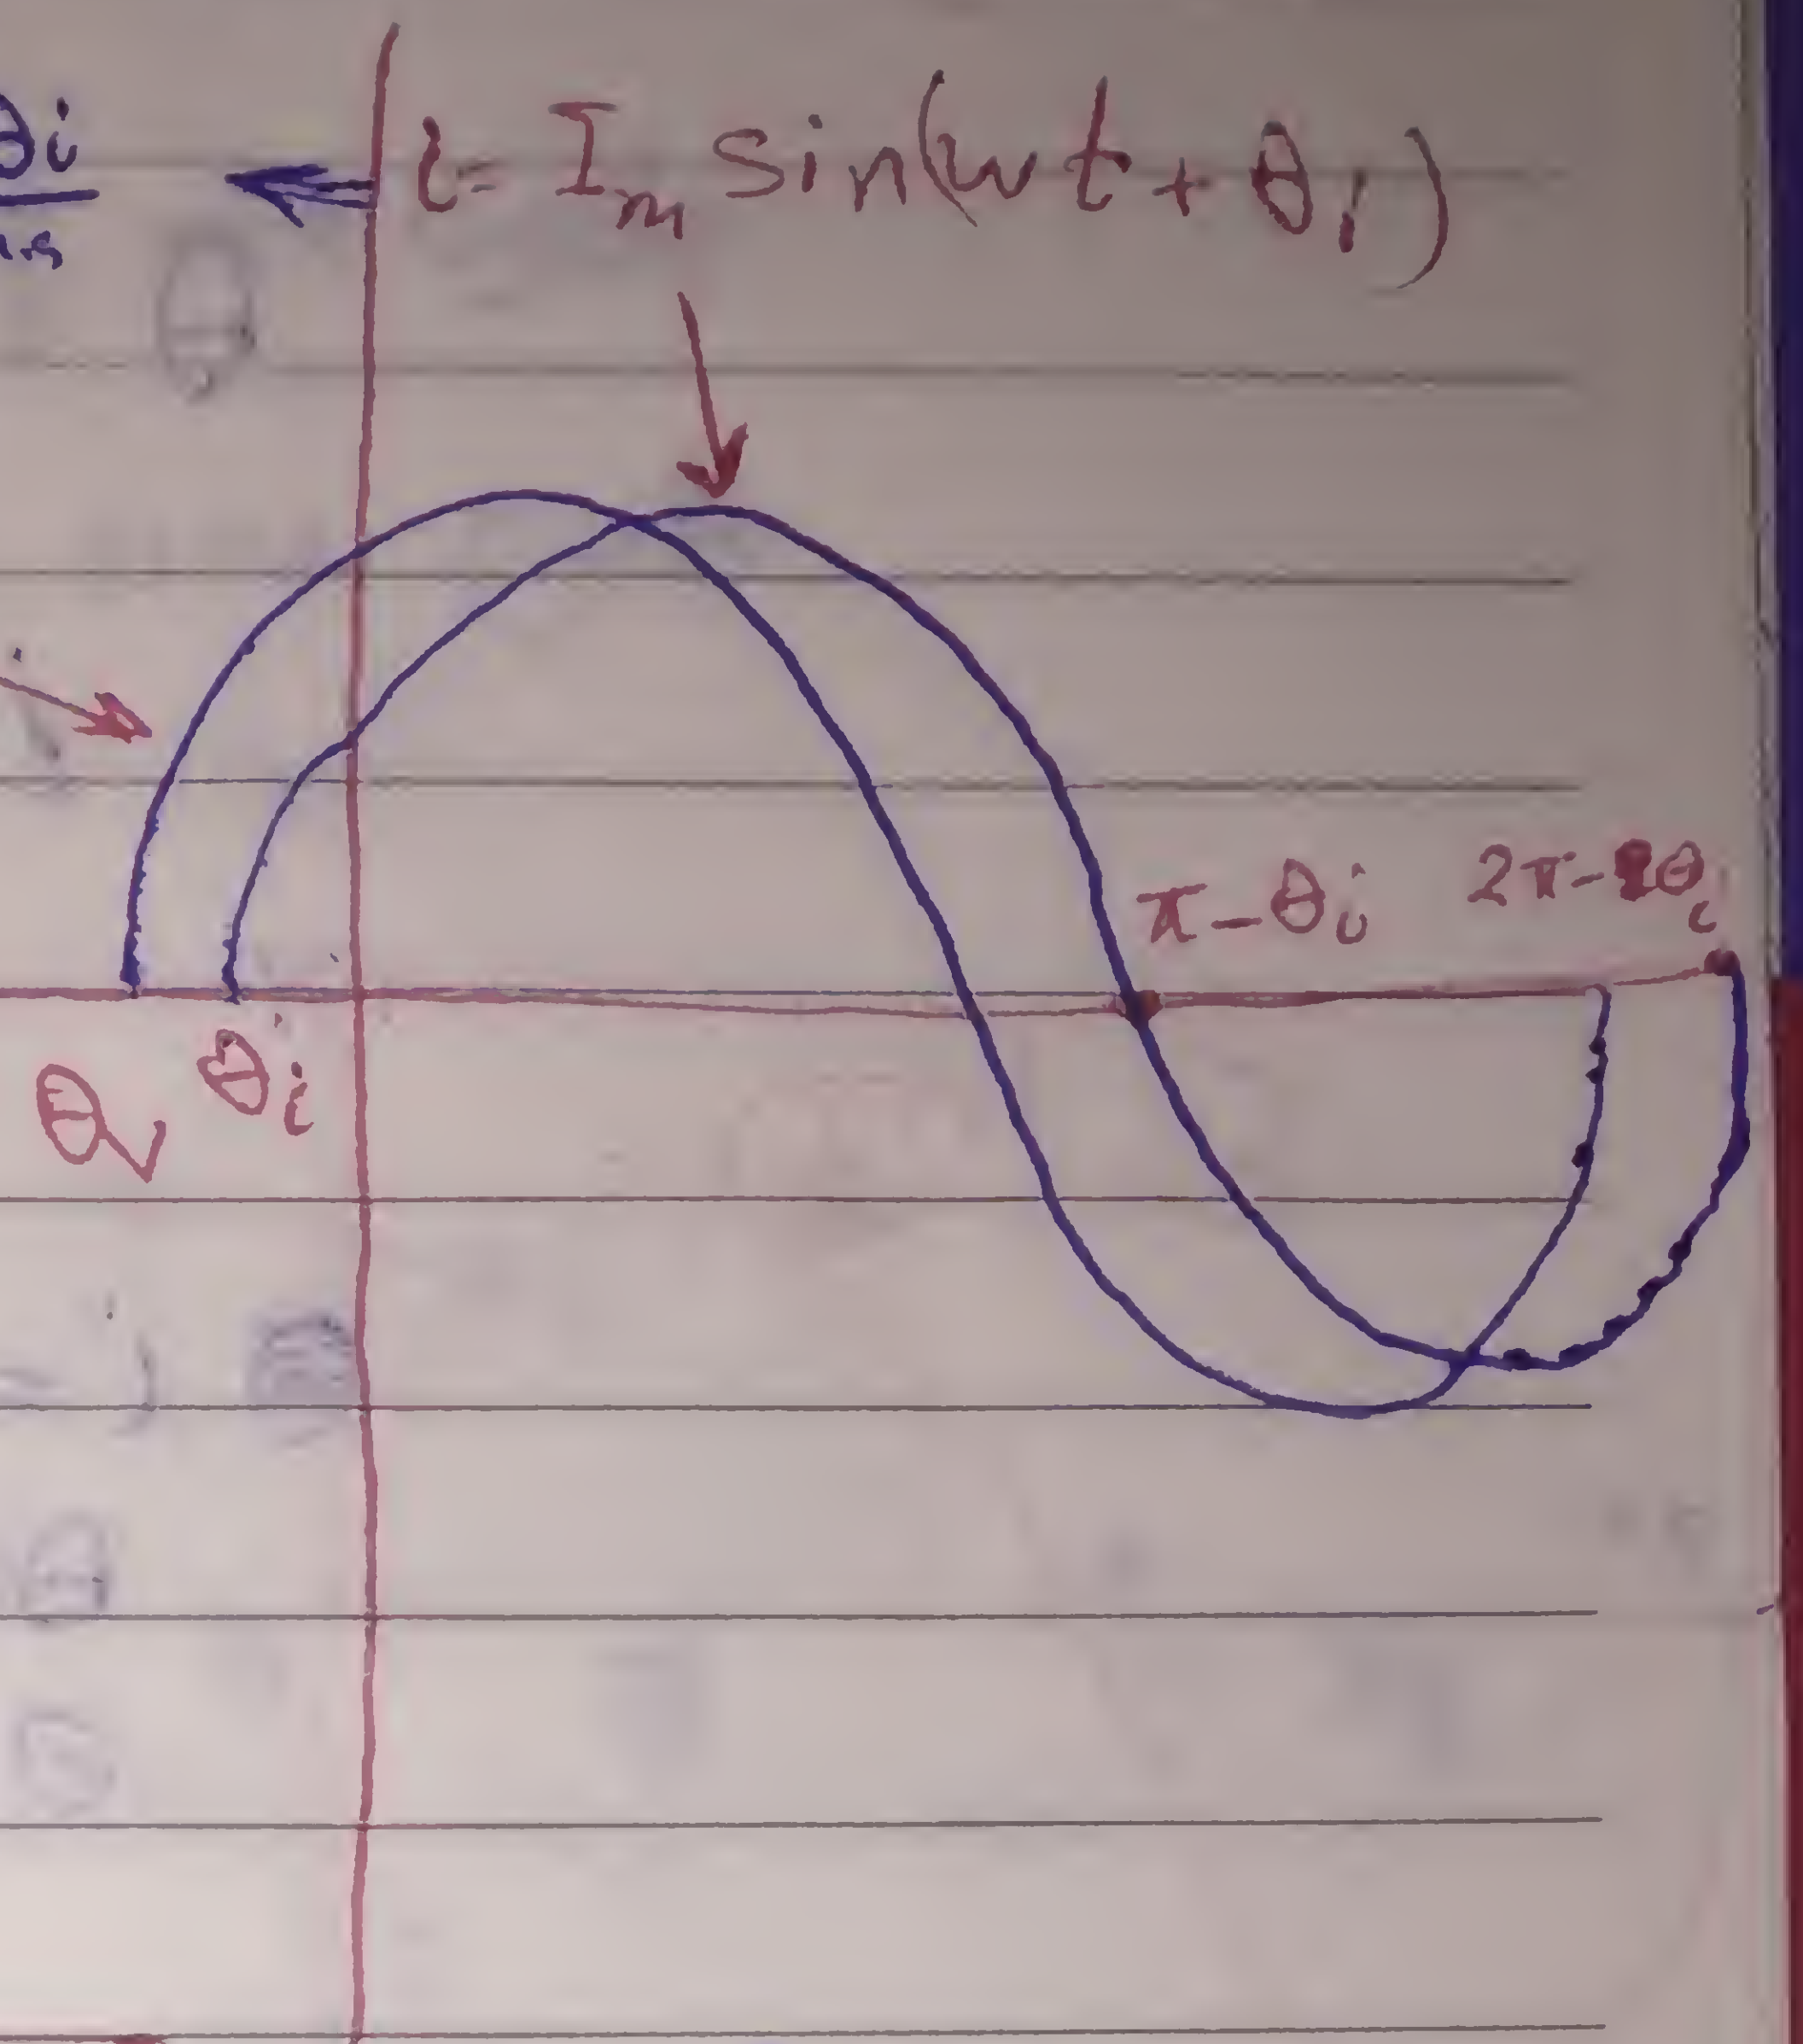 θi
i= Im sin(wt + θi)
π-θi 2π-θi
θv θi